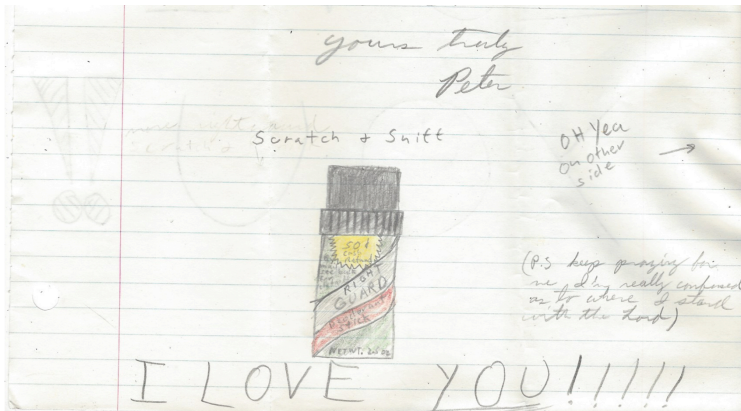 yours truly
Peter
Scratch & Sniff
OH Yea
on other
side
50¢
RIGHT
GUARD
STICK
NET WT. 2.5 OZ
(P.S keep praying for
me, I'm really confused
as to where I stand
with the Lord)
I LOVE YOU!!!!!